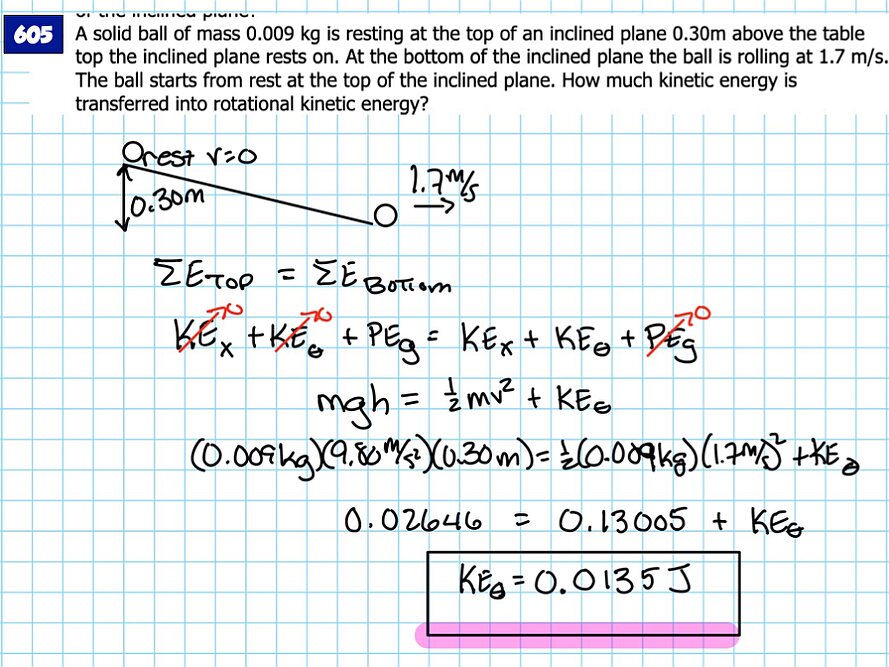 of the inclined plane?
605 A solid ball of mass 0.009 kg is resting at the top of an inclined plane 0.30m above the table
top the inclined plane rests on. At the bottom of the inclined plane the ball is rolling at 1.7 m/s.
The ball starts from rest at the top of the inclined plane. How much kinetic energy is
transferred into rotational kinetic energy?
rest v=0
1.7 m/s
0.30m
ΣE TOP = ΣE BOTTOM
KEx + KEθ + PEg = KEx + KEθ + PEg
0 0 0
mgh = ½mv² + KEθ
(0.009kg)(9.80 m/s²)(0.30m) = ½(0.009kg)(1.7m/s)² + KEθ
0.02646 = 0.13005 + KEθ
KEθ = 0.0135 J